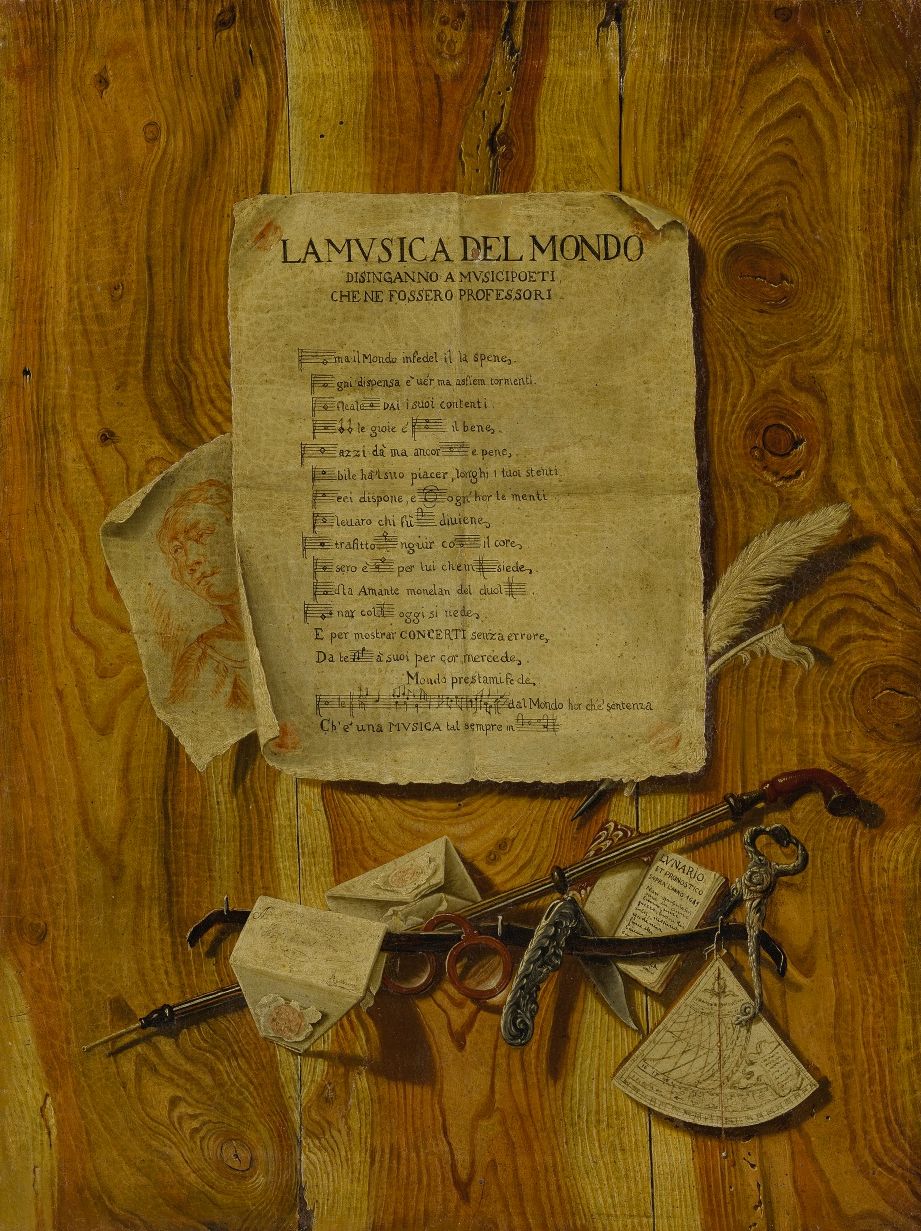 LA MVSICA DEL MONDO
DISINGANNO A MVSICI POETI
CHE NE FOSSERO PROFESSORI
ma il Mondo infedel il la spene,
gni dispensa è uér ma assiem tormenti.
fleale DAi i suoi contenti.
le gioie é il bene,
azzi dà ma ancor e pene,
bile ha'l suo piacer, longhi i tuoi stenti.
cei dispone, e ogn'hor le menti
leuaro chi fù diuiene,
trafitto ngiùr co il core,
sero è per lui che in siede,
sta Amante mone lan del duol
nar col oggi si riede,
E per mostrar CONCERTI senza errore,
Da te à suoi per çor, mercede,
Mondo prestami fede,
le dal Mondo hor ch'è sentenza
Ch'è una MVSICA tal sempre in
LVNARIO
ET PRONOSTICO
SOPRA L'ANNO 1681